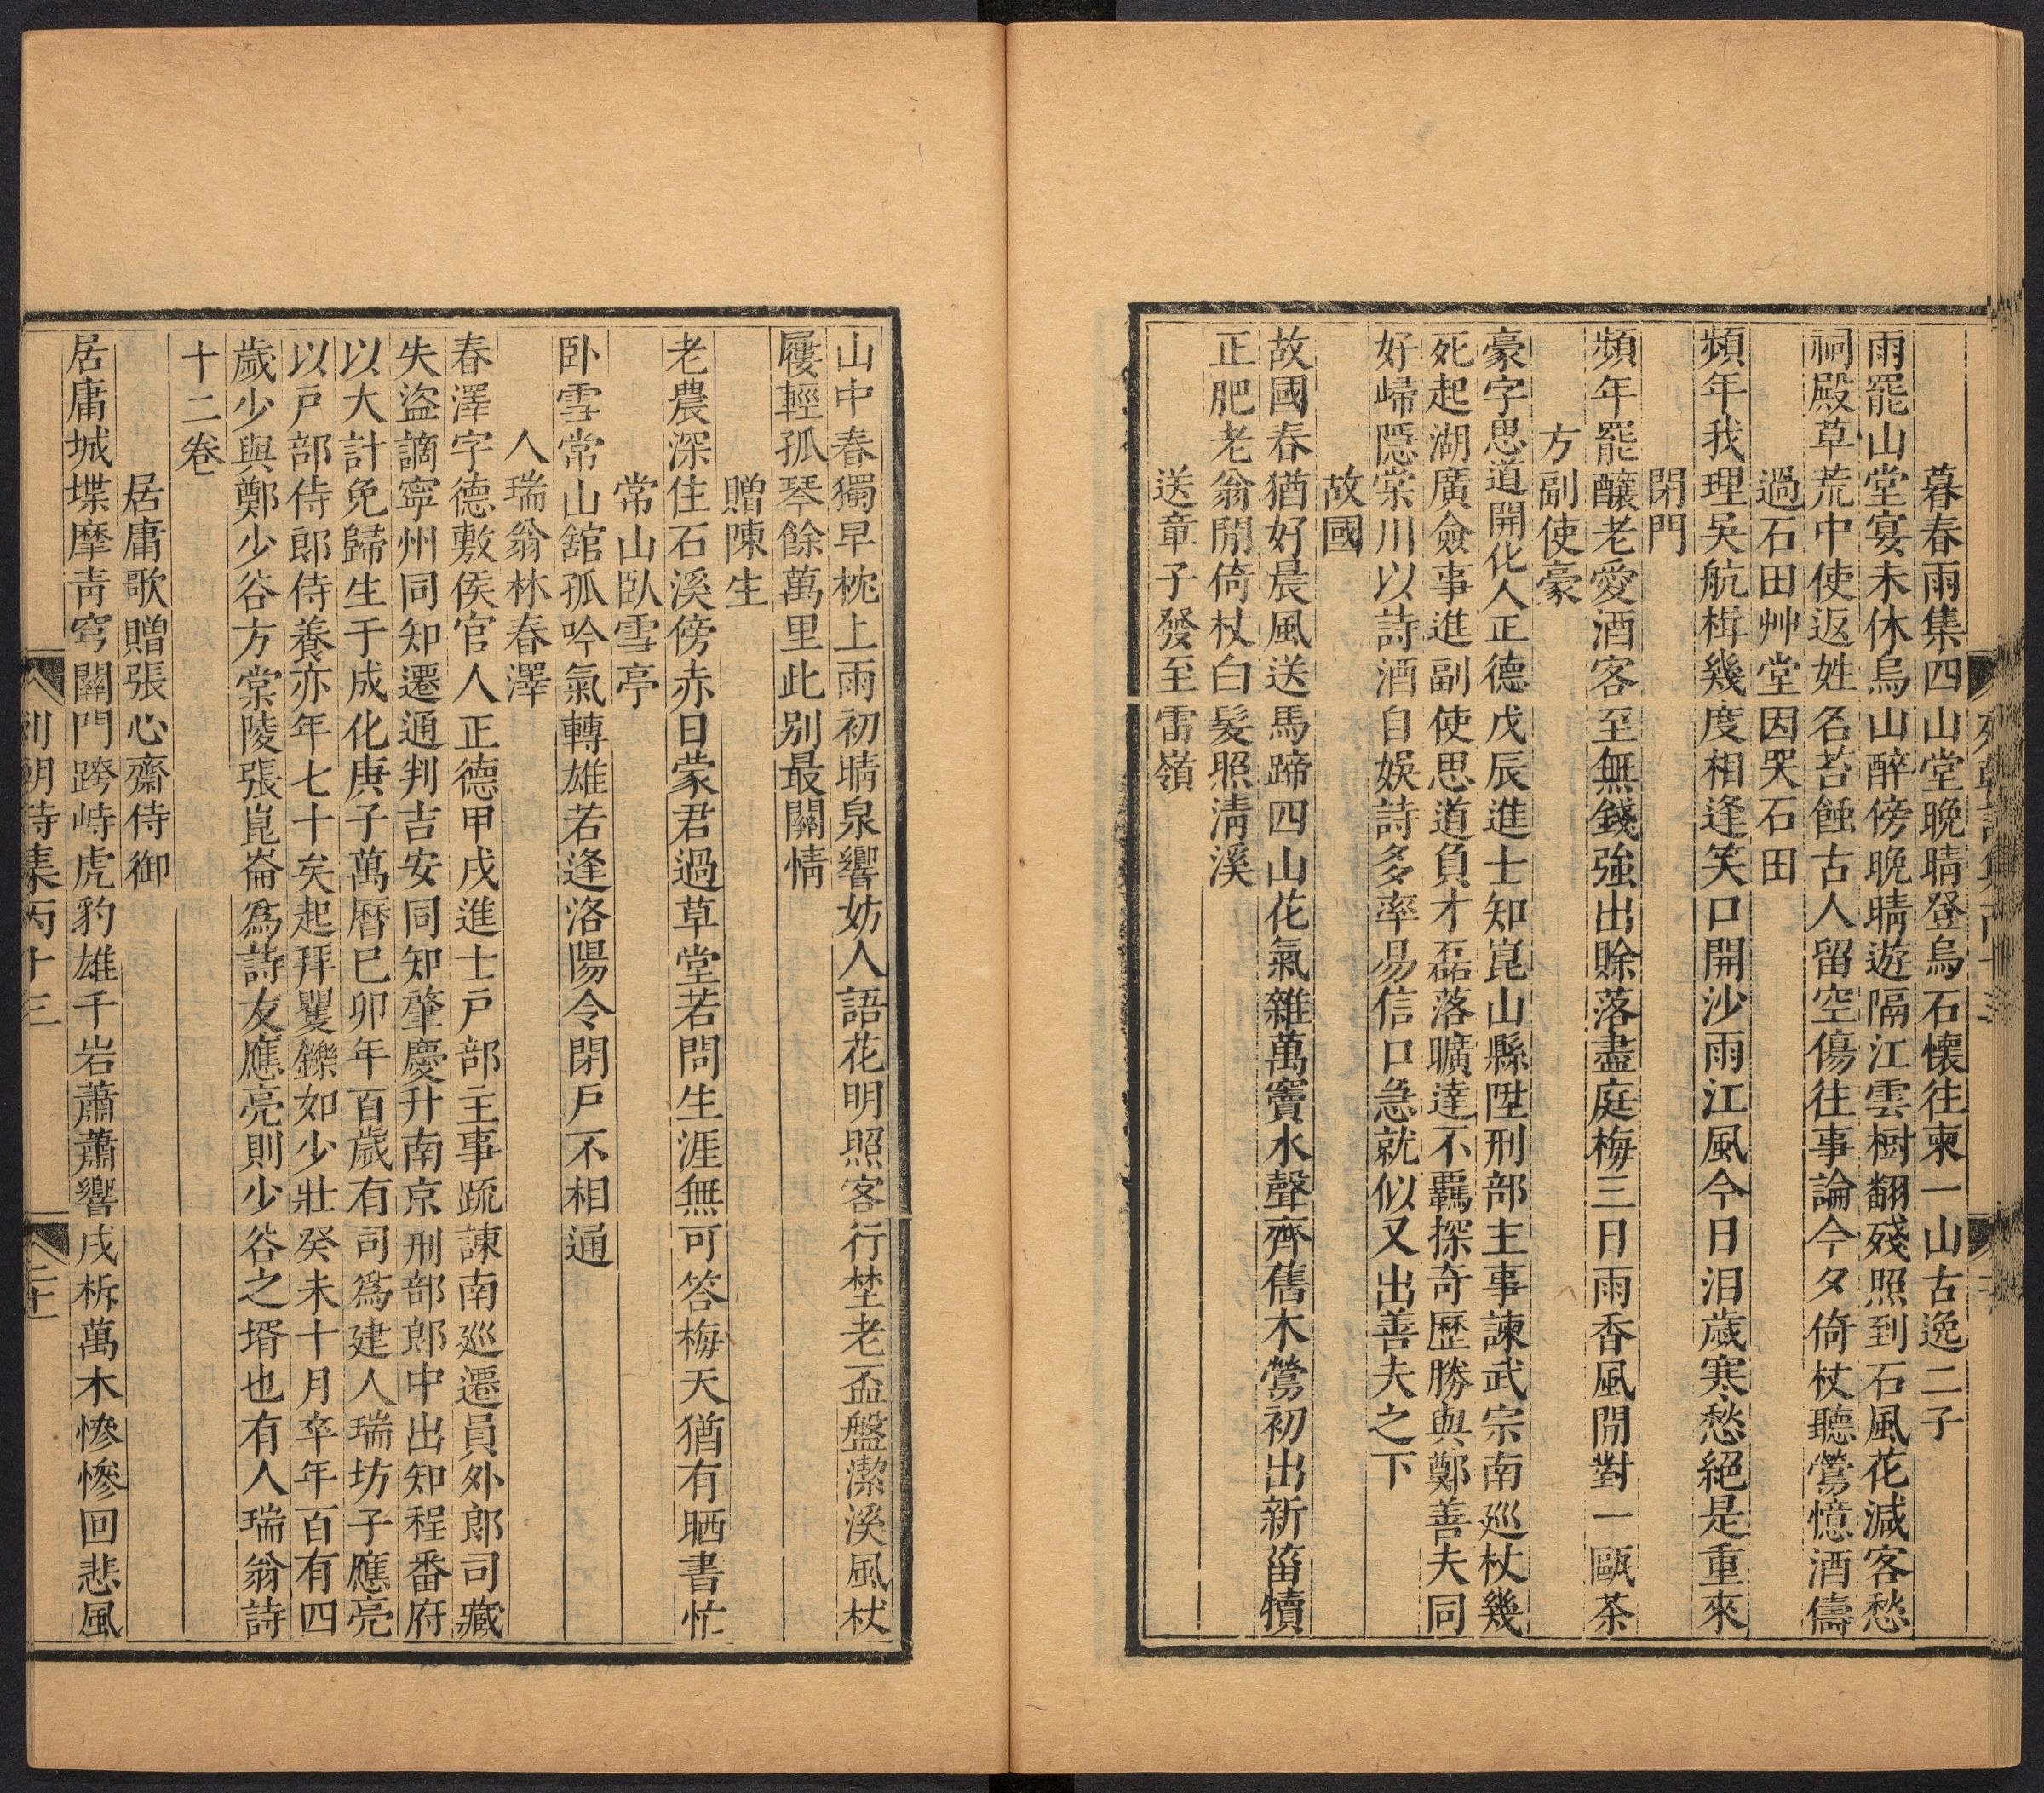 暮春雨集四山堂晚晴登烏石懷往柬一山古逸二子
雨罷山堂宴未休烏山醉傍晚晴遊隔江雲樹翻殘照到石風花減客愁
祠殿草荒中使返姓名苔蝕古人留空傷往事論今夕倚杖聽鶯憶酒儔
過石田艸堂因哭石田
頻年我理吳航楫幾度相逢笑口開沙雨江風今日淚歲寒愁絕是重來
閉門
頻年罷釀老愛酒客至無錢強出賒落盡庭梅三日雨香風閒對一甌茶
方副使豪
豪字思道開化人正德戊辰進士知崑山縣陞刑部主事諫武宗南廵杖幾
死起湖廣僉事進副使思道負才磊落曠達不羈探奇歷勝與鄭善夫同
好歸隱棠川以詩酒自娛詩多率易信口急就似又出善夫之下
故國
故國春猶好晨風送馬蹄四山花氣雜萬竇水聲齊舊木鶯初出新菑犢
正肥老翁閒倚杖白髮照淸溪
送章子發至雷嶺
山中春獨早枕上雨初晴泉響妨人語花明照客行埜老盃盤潔溪風杖
屨輕孤琴餘萬里此别最關情
贈陳生
老農深住石溪傍赤日蒙君過草堂若問生涯無可答梅天猶有晒書忙
常山臥雪亭
卧雪常山舘孤吟氣轉雄若逢洛陽令閉戸不相通
人瑞翁林春澤
春澤字德敷侯官人正德甲戌進士戸部主事䟽諫南廵遷員外郎司藏
失盜謫寧州同知遷通判吉安同知肇慶升南京刑部郎中出知程番府
以大計免歸生于成化庚子萬曆巳卯年百歲有司爲建人瑞坊子應亮
以戸部侍郎侍養亦年七十矣起拜矍鑠如少壯癸未十月卒年百有四
歲少與鄭少谷方棠陵張崑崙爲詩友應亮則少谷之壻也有人瑞翁詩
十二卷
居庸歌贈張心齋侍御
居庸城堞摩靑穹關門跨峙虎豹雄千岩蕭蕭響戍柝萬木慘慘回悲風
列朝詩集丙十三